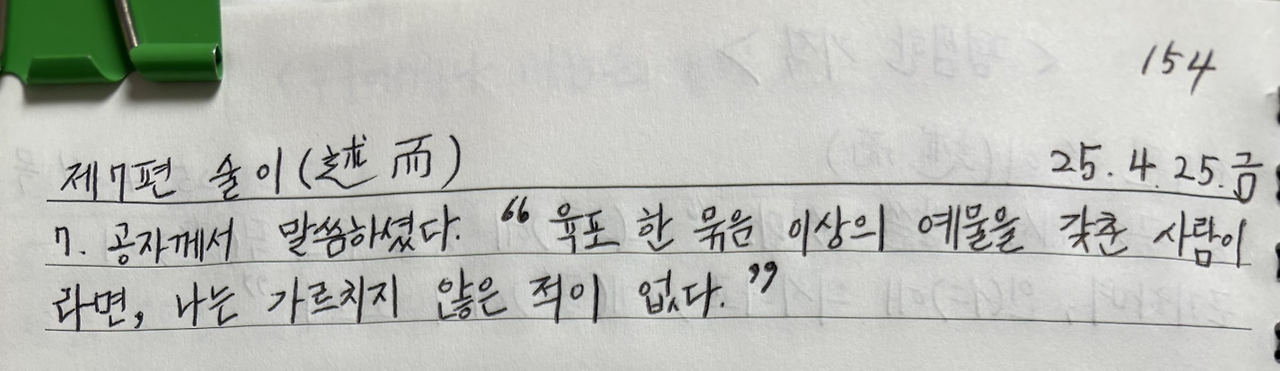 154
제7편 술이(述而) 25.4.25.금
7. 공자께서 말씀하셨다. “육포 한 묶음 이상의 예물을 갖춘 사람이
라면, 나는 가르치지 않은 적이 없다.”